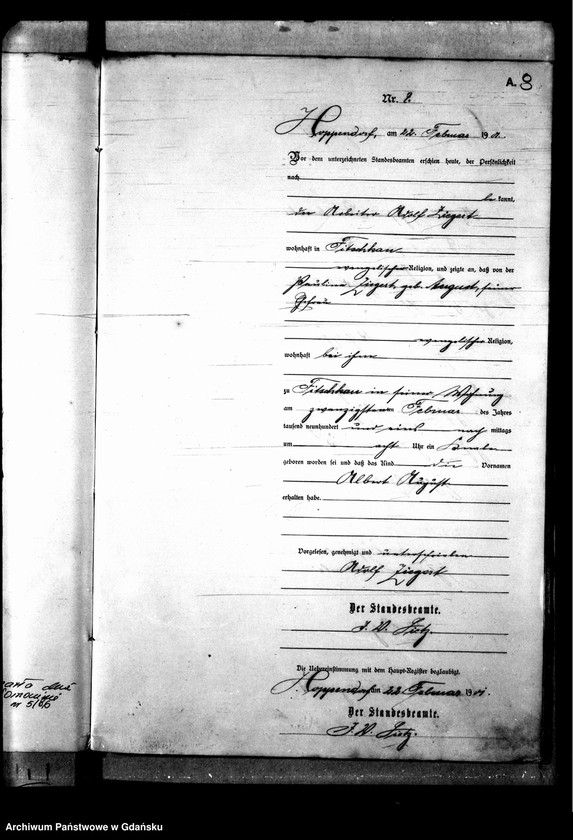 A. 8
Nr. 8.
Hoppendorf, am 22. Februar 1901.
Vor dem unterzeichneten Standesbeamten erschien heute, der Persönlichkeit
nach
bekannt,
der Arbeiter Adolf Ziegert
wohnhaft in Fitschkau
evangelischer Religion, und zeigte an, daß von der
Pauline Ziegert, geb. August, seiner
Ehefrau
evangelischer Religion,
wohnhaft bei ihm
zu Fitschkau in seiner Wohnung
am zwanzigsten Februar des Jahres
tausend neunhundert und eins nach mittags
um acht Uhr ein Knabe
geboren worden sei und daß das Kind die Vornamen
Albert August
erhalten habe.
Vorgelesen, genehmigt und unterschrieben
Adolf Ziegert
Der Standesbeamte.
J. V.
Die Uebereinstimmung mit dem Haupt-Register beglaubigt.
Hoppendorf am 22. Februar 1901.
Der Standesbeamte.
J. V.
nr 5/86
Archiwum Państwowe w Gdańsku